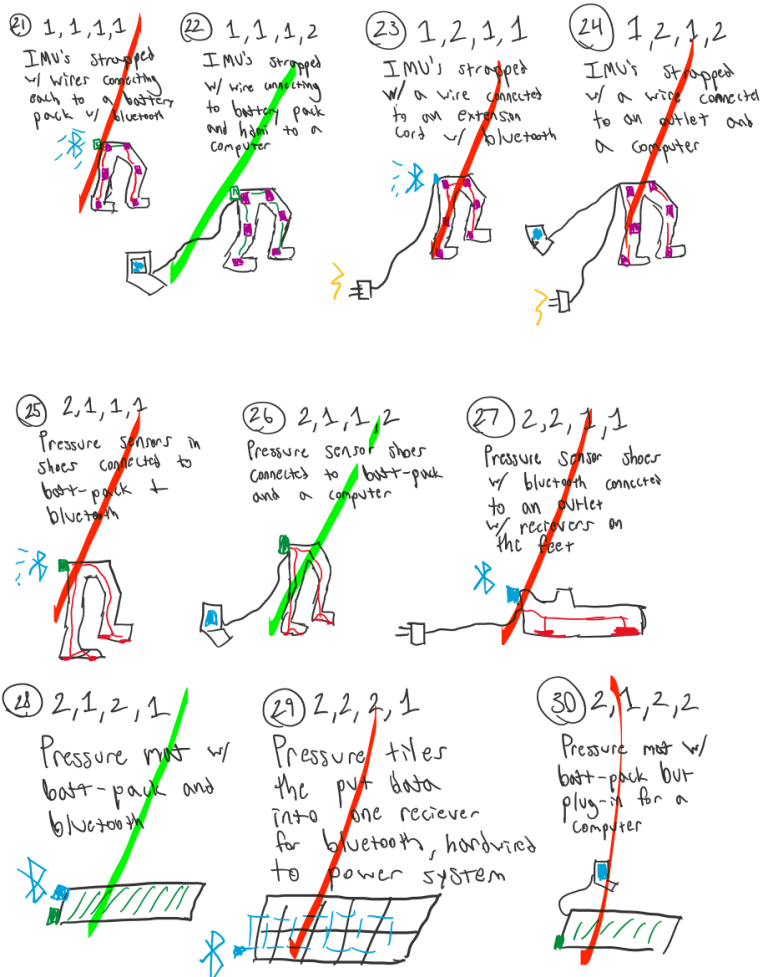 21 1,1,1,1
IMU's strapped
w/ wires connecting
each to a battery
pack w/ bluetooth
22 1,1,1,2
IMU's strapped
w/ wire connecting
to battery pack
and hdmi to a
computer
23 1,2,1,1
IMU's strapped
w/ a wire connected
to an extension
cord w/ bluetooth
24 1,2,1,2
IMU's strapped
w/ a wire connected
to an outlet and
a computer
25 2,1,1,1
Pressure sensors in
shoes connected to
batt-pack +
bluetooth
26 2,1,1,2
Pressure sensor shoes
connected to batt-pack
and a computer
27 2,2,1,1
Pressure sensor shoes
w/ bluetooth connected
to an outlet
w/ recievers on
the feet
28 2,1,2,1
Pressure mat w/
batt-pack and
bluetooth
29 2,2,2,1
Pressure tiles
the put data
into one reciever
for bluetooth, hardwired
to power system
30 2,1,2,2
Pressure mat w/
batt-pack but
plug-in for a
computer